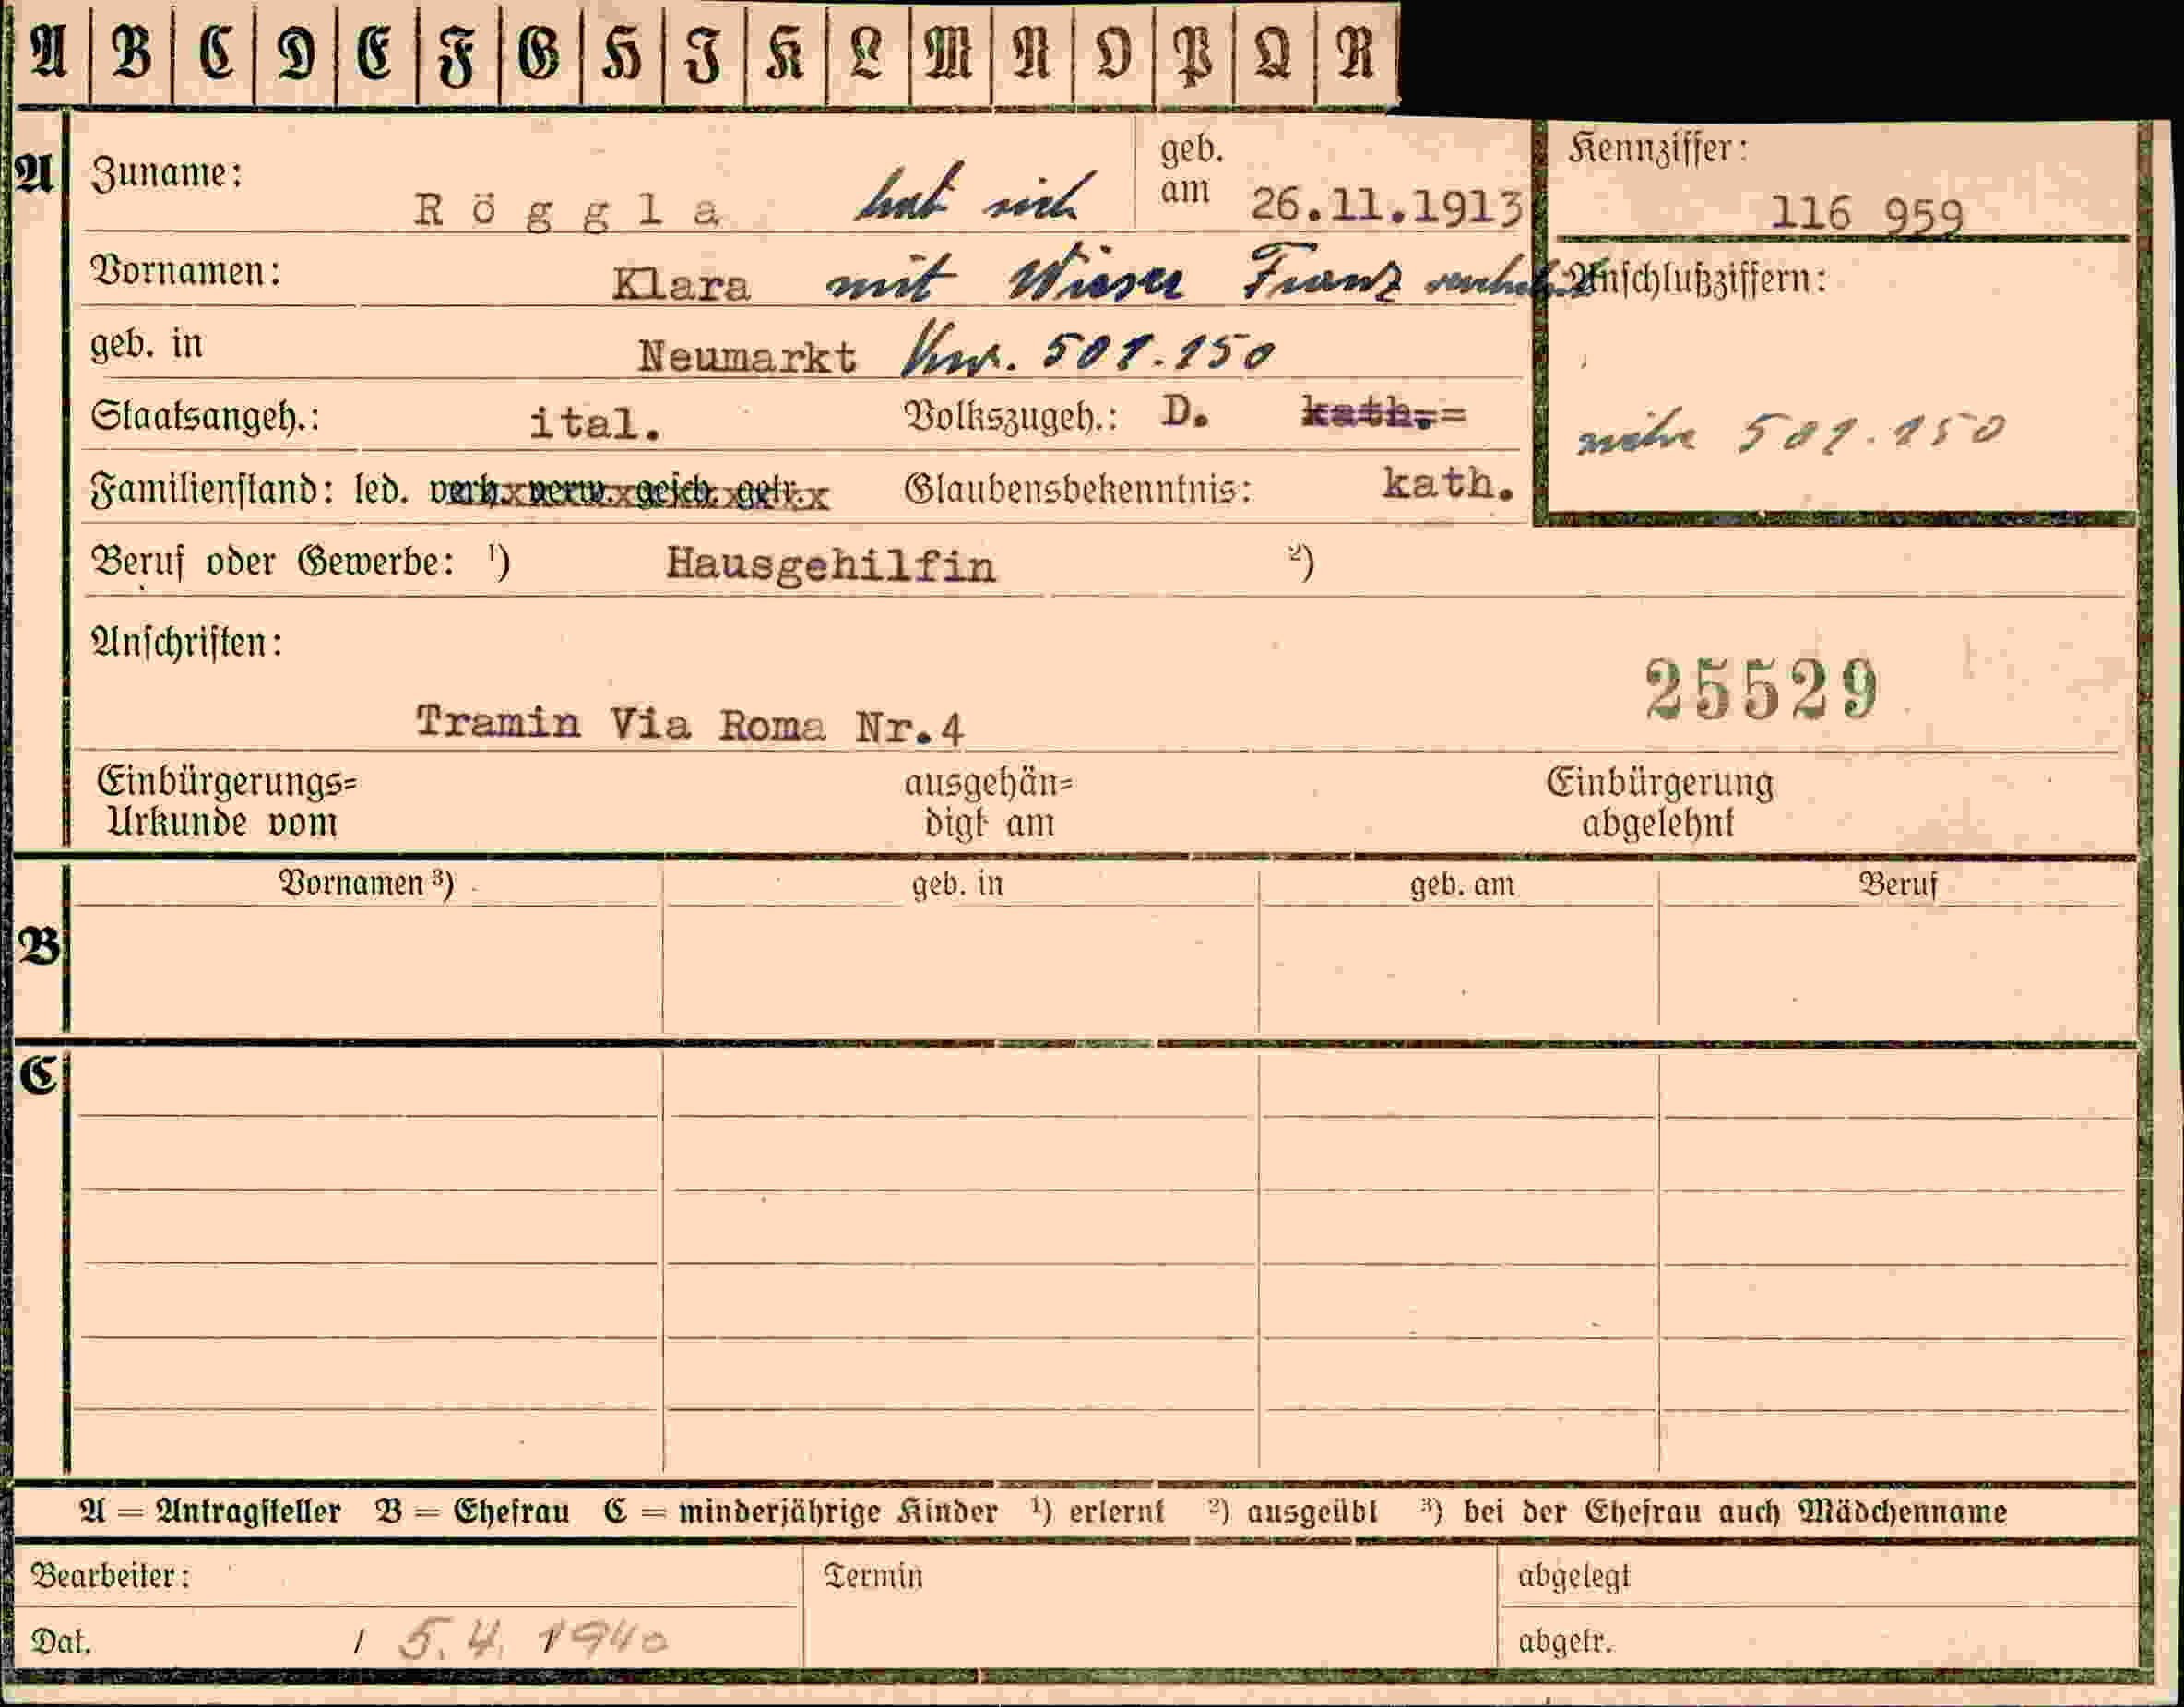 A B C D E F G H I K L M N O P Q R
A Zuname: Röggla hat sich geb. am 26.11.1913 Kennziffer: 116 959
Vornamen: Klara mit Wieser Franz Anschlußziffern:
geb. in Neumarkt Knr. 501.150
Staatsangeh.: ital. Volkszugeh.: D. kath.= 501.150
Familienstand: led. verh. verw. gesch. getr. Glaubensbekenntnis: kath.
Beruf oder Gewerbe: 1) Hausgehilfin 2)
Anschriften:
25529
Tramin Via Roma Nr.4
Einbürgerungs= ausgehän= Einbürgerung
Urkunde vom digt am abgelehnt
Vornamen 3) geb. in geb. am Beruf
B
C
A = Antragsteller B = Ehefrau C = minderjährige Kinder 1) erlernt 2) ausgeübt 3) bei der Ehefrau auch Mädchenname
Bearbeiter: Termin abgelegt
Dat. / 5.4.1940 abgetr.